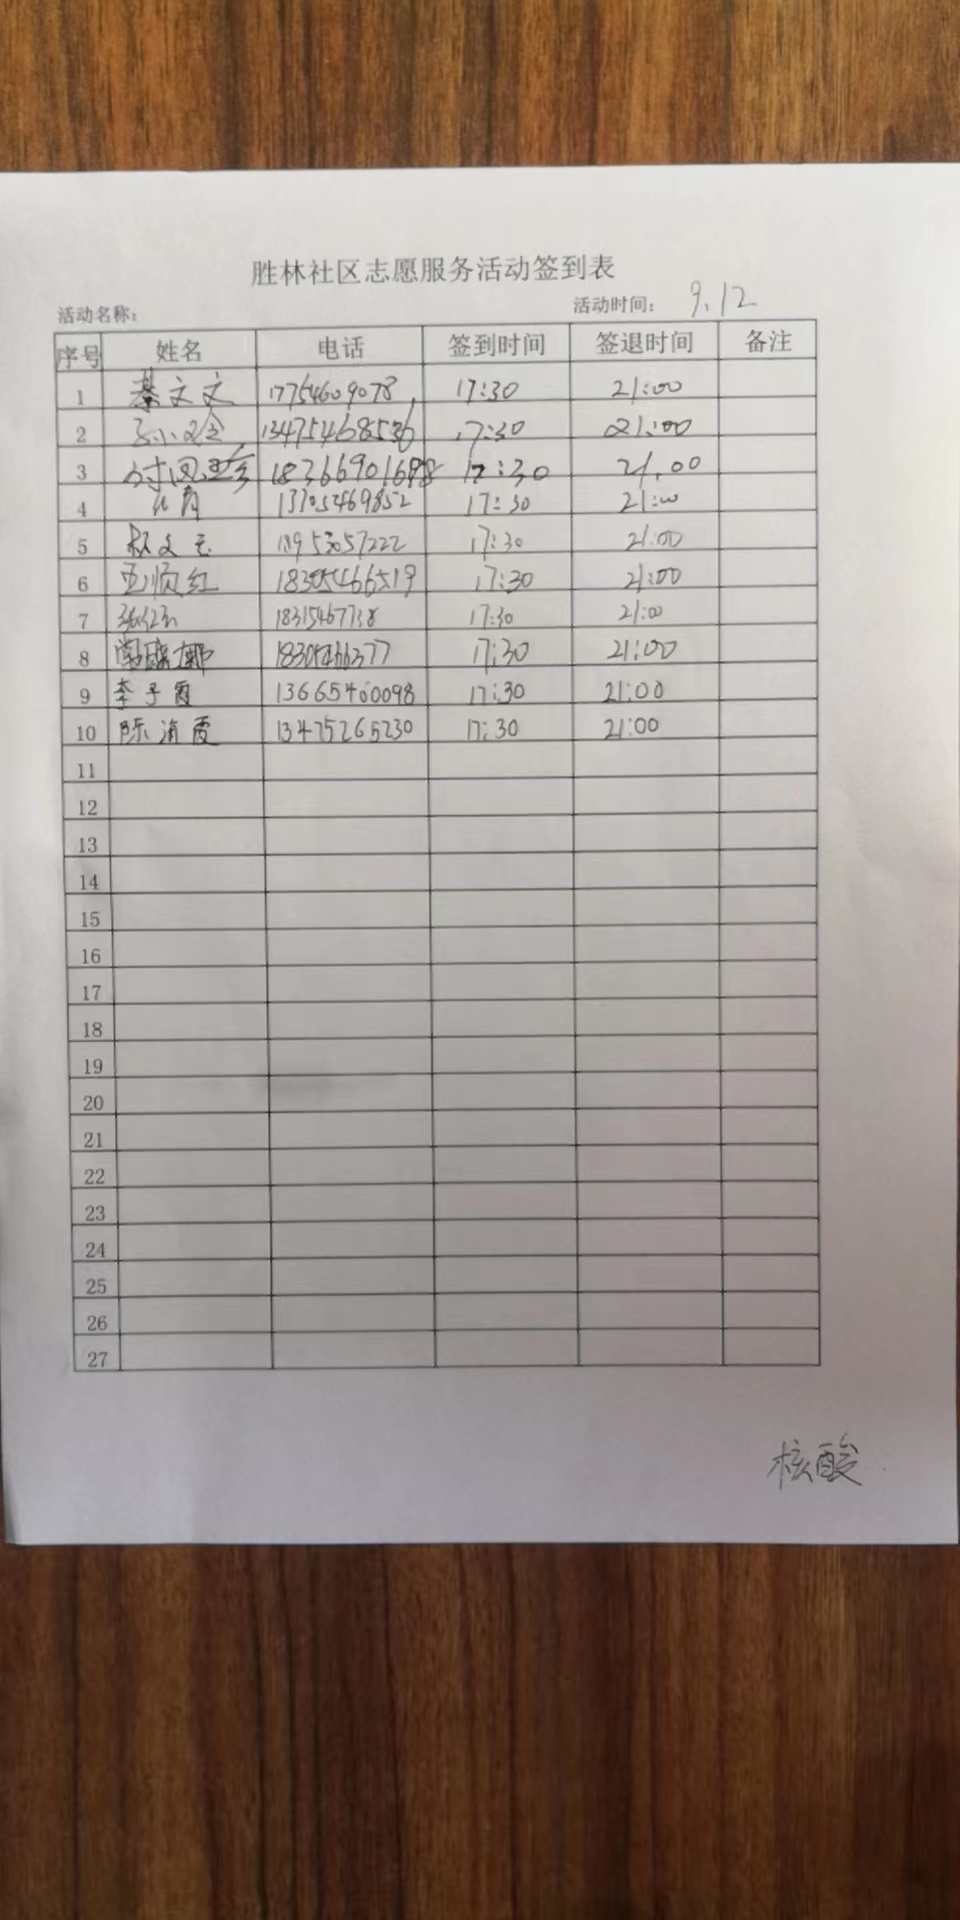 胜林社区志愿服务活动签到表
活动名称： 活动时间： 9.12
序号 姓名 电话 签到时间 签退时间 备注
1 綦文文 17754609078 17:30 21:00
2 13475468536 17:30 21:00
3 17:30 21.00
4 13705469852 17:30 21:00
5 17:30 21:00
6 顺红 18305466519 17:30 21:00
7 17:30 21:00
8 17:30 21:00
9 李子霞 13665460098 17:30 21:00
10 陈清霞 13475265230 17:30 21:00
11
12
13
14
15
16
17
18
19
20
21
22
23
24
25
26
27
核酸